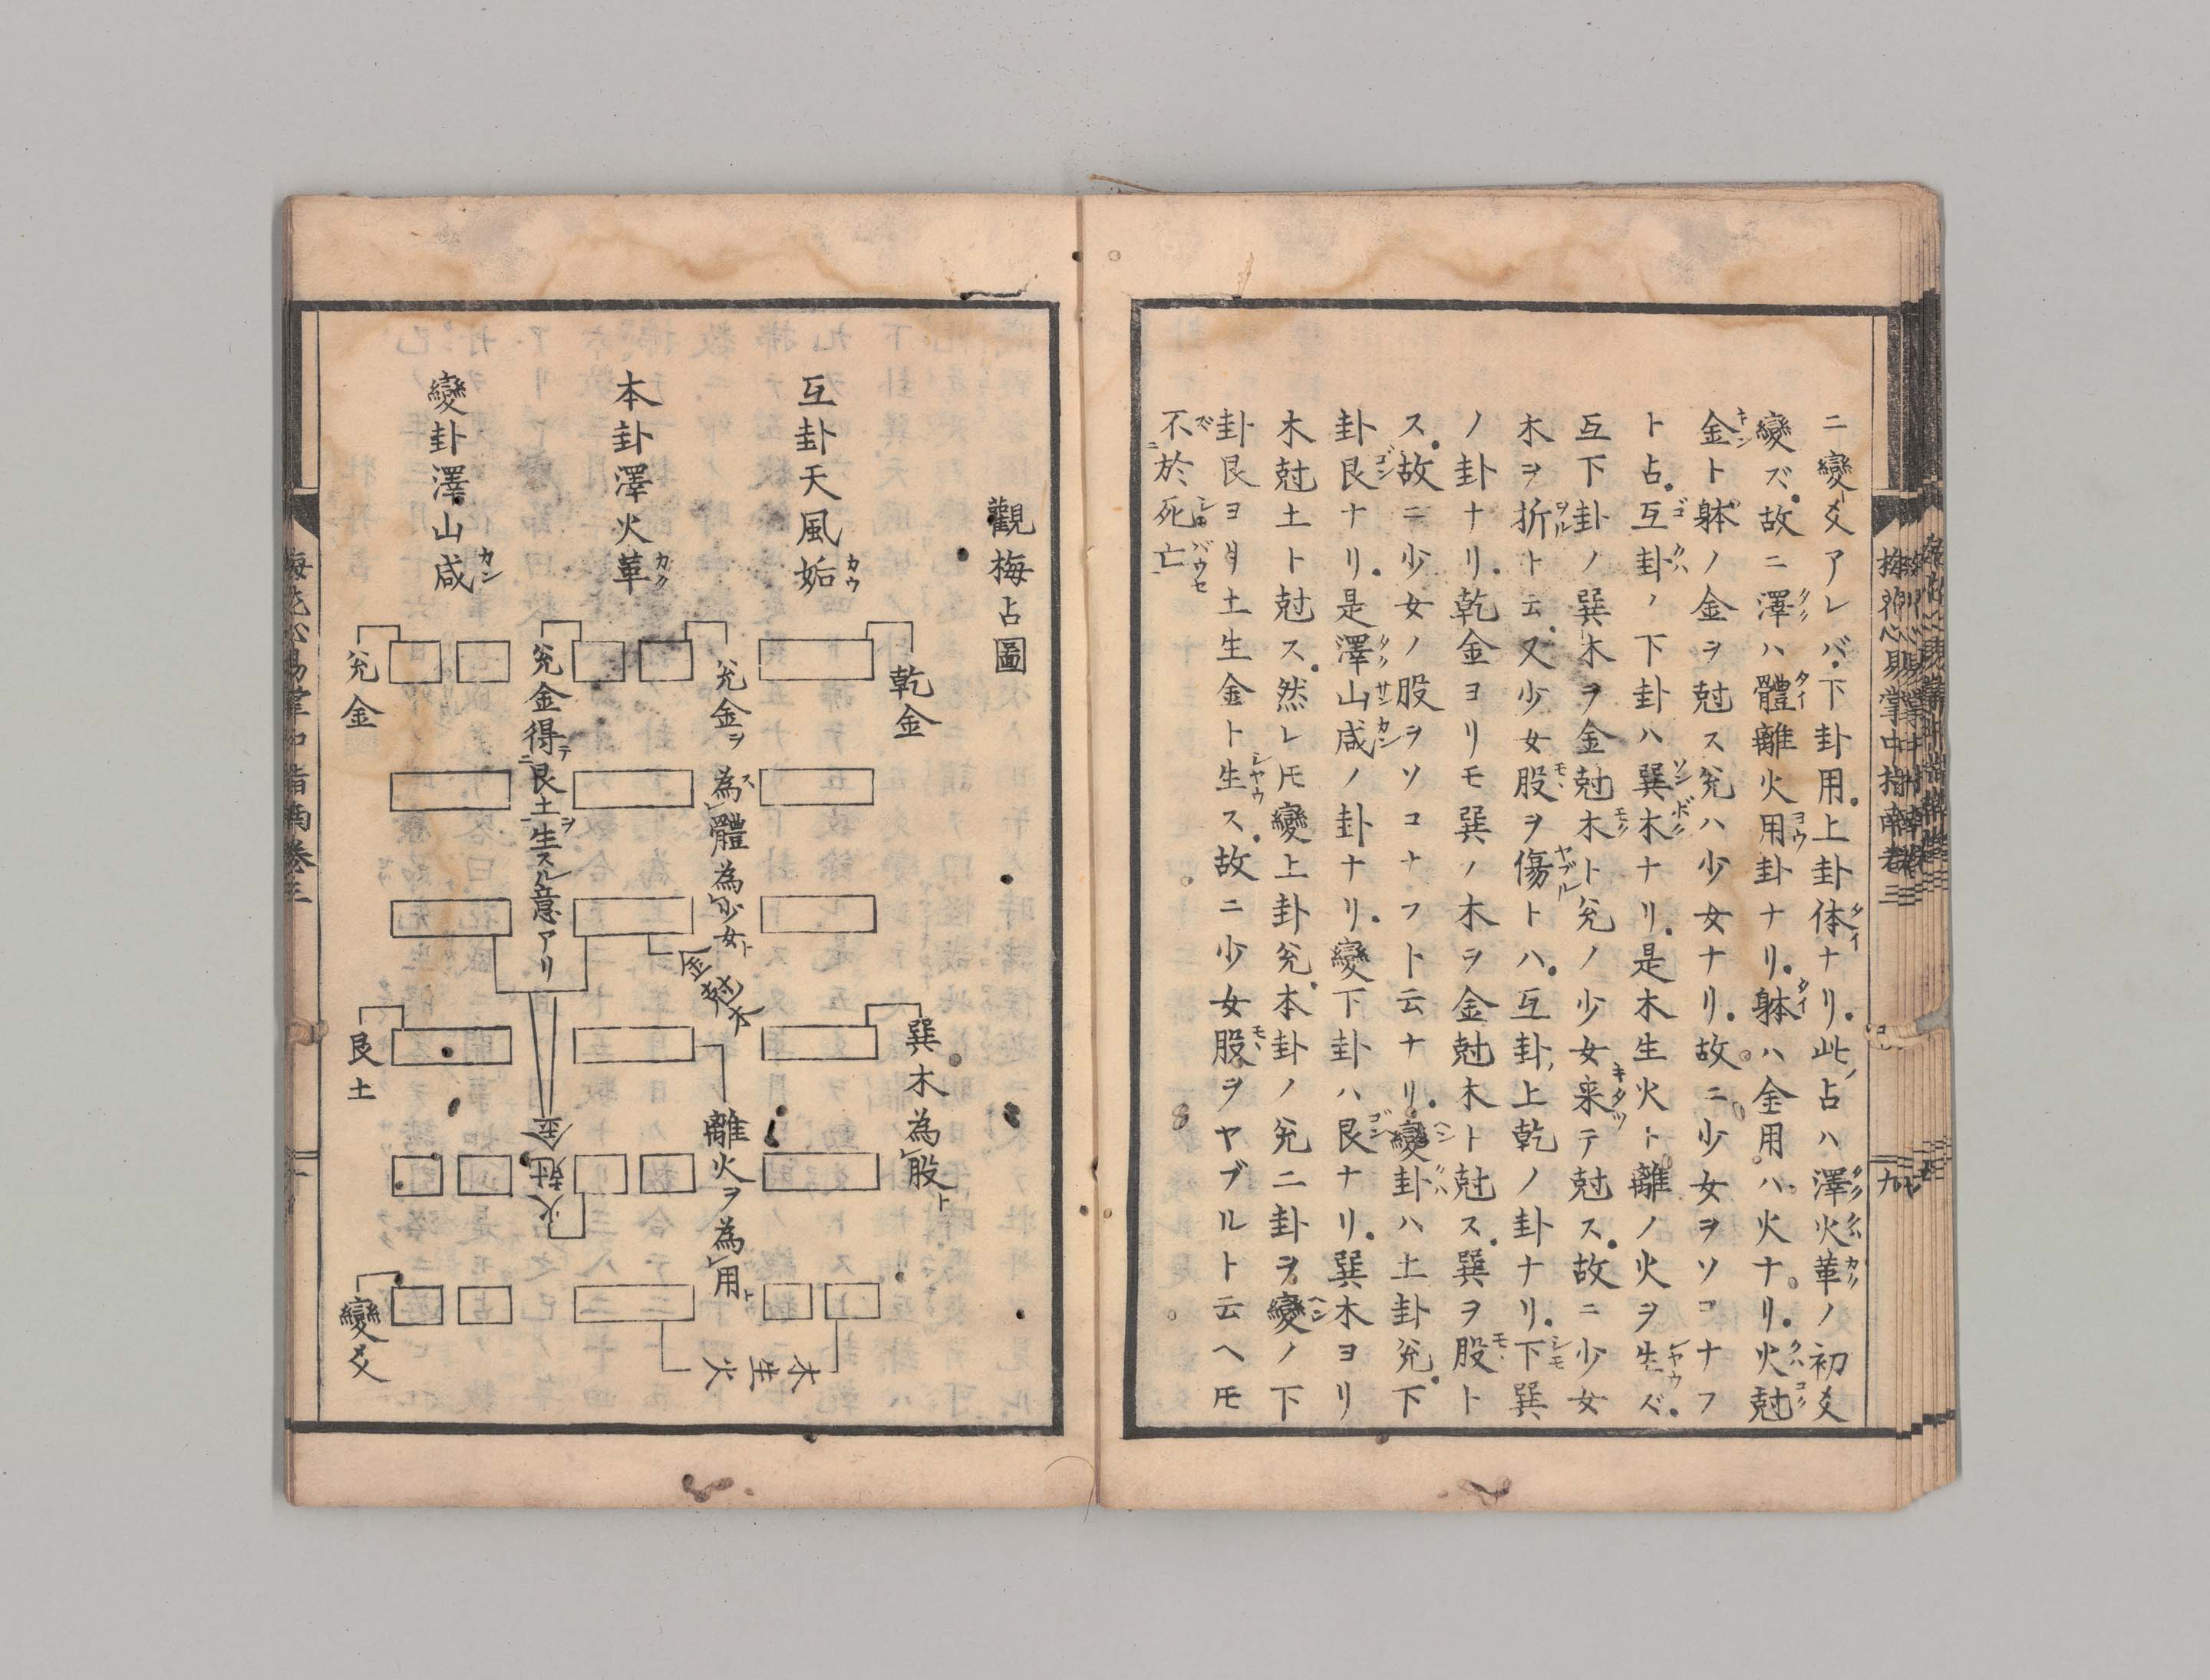 ニ變爻アレバ下卦用上卦体ナリ此占ハ澤火革ノ初爻
變ズ故ニ澤ハ體離火用卦ナリ躰ハ金用ハ火ナリ火尅
金ト躰ノ金ヲ尅ス兊ハ少女ナリ故ニ少女ヲソコナフ
ト占互卦ノ下卦ハ巽木ナリ是木生火ト離ノ火ヲ生ズ
互下卦ノ巽木ヲ金尅木ト兊ノ少女来テ尅ス故ニ少女
木ヲ折ト云又少女股ヲ傷トハ互卦上乾ノ卦ナリ下巽
ノ卦ナリ乾金ヨリモ巽ノ木ヲ金尅木ト尅ス巽ヲ股ト
ス故ニ少女ノ股ヲソコナフト云ナリ變卦ハ上卦兊下
卦艮ナリ是澤山咸ノ卦ナリ變下卦ハ艮ナリ巽木ヨリ
木尅土ト尅ス然レ𪜈變上卦兊本卦ノ兊二卦ヲ變ノ下
卦艮ヨリ土生金ト生ス故ニ少女股ヲヤブルト云ヘ𪜈
不於死亡
梅花心易掌中指南卷三
九
觀梅占圖
互卦天風姤
乾金
巽木為股ト
木生火
本卦澤火革
兊金ヲ為體為少女ト
金尅木
離火ヲ為用ト
兊金得テ艮土生ヲスル意アリ
金尅火
變卦澤山咸
兊金
艮土
變爻
梅花心易掌中指南卷三